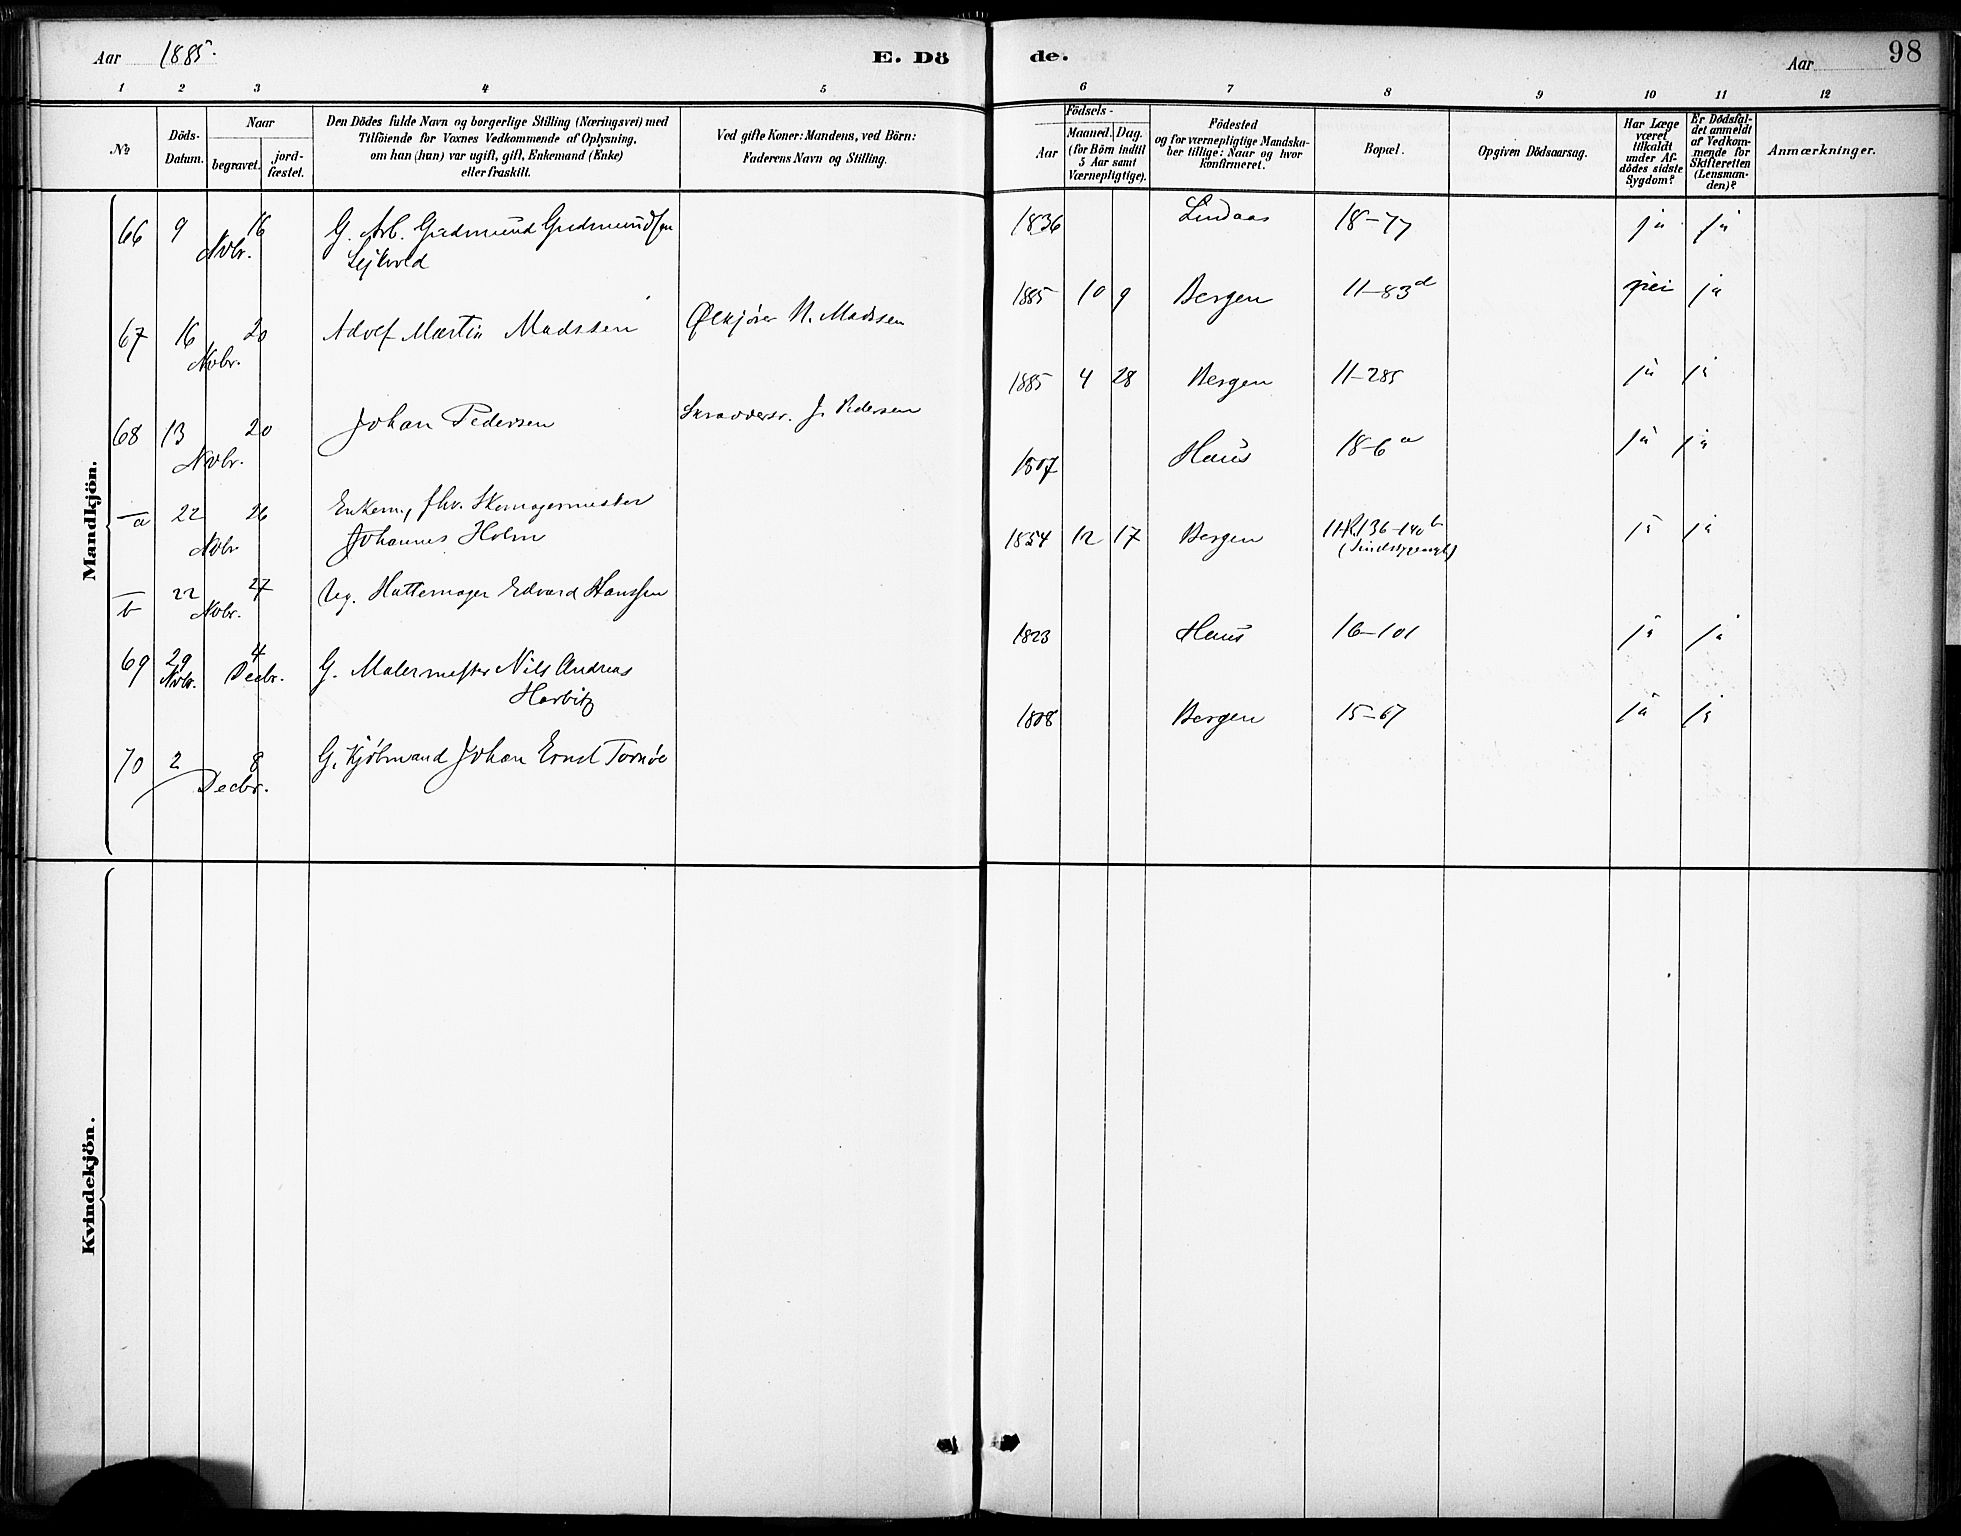 Aar 1885.
E. Dö
de.
Aar
98
1 2 3 4 5 6 7 8 9 10 11 12
No
Döds-
Datum.
Naar
begravet.
jord-
fæstet.
Den Dödes fulde Navn og borgerlige Stilling (Næringsvei) med
Tilföiende for Voxnes Vedkommende af Oplysning,
om han (hun) var ugift, gift, Enkemand (Enke)
eller fraskilt.
Ved gifte Koner: Mandens, ved Börn:
Faderens Navn og Stilling.
Födsels-
Aar
Maaned. Dag.
(for Börn indtil
5 Aar samt
Værnepligtige).
Födested
og for værnepligtige Mandska-
ber tillige: Naar og hvor
konfirmeret.
Bopæl.
Opgiven Dödsaarsag.
Har Læge
været
tilkaldt
under Af-
dödes sidste
Sygdom?
Er Dödsfal-
det anmeldt
af Vedkom-
mende for
Skifteretten
(Lensman-
den)?
Anmærkninger.
Mandkjön.
66 9 16 G. Arb. Gudmund Gudmundsen 1836 Lindaas 18-77 ja ja
Novbr.
67 16 20 Adolf Martin Madssen Ølkjører N. Madssen 1885 10 9 Bergen 11-83d nei ja
Novbr.
68 13 20 Johan Pedersen J. Pedersen 1885 4 28 Bergen 11-285 ja ja
Novbr.
- a 22 26 Enkem., fhv. Skomagermester 1807 Haus 18-6a ja ja
Novbr. Johannes Holm
- b 22 27 Ug. Hattemager Edvard Hanssen 1854 12 17 Bergen ja ja
Novbr.
69 29 4 G. Malermester Nils Andreas 1823 Haus 16-101 ja ja
Novbr. Decbr. Harbitz
70 2 8 G. Kjøbmand Johan Ernst Tornøe 1808 Bergen 15-67 ja ja
Decbr.
Kvindekjön.